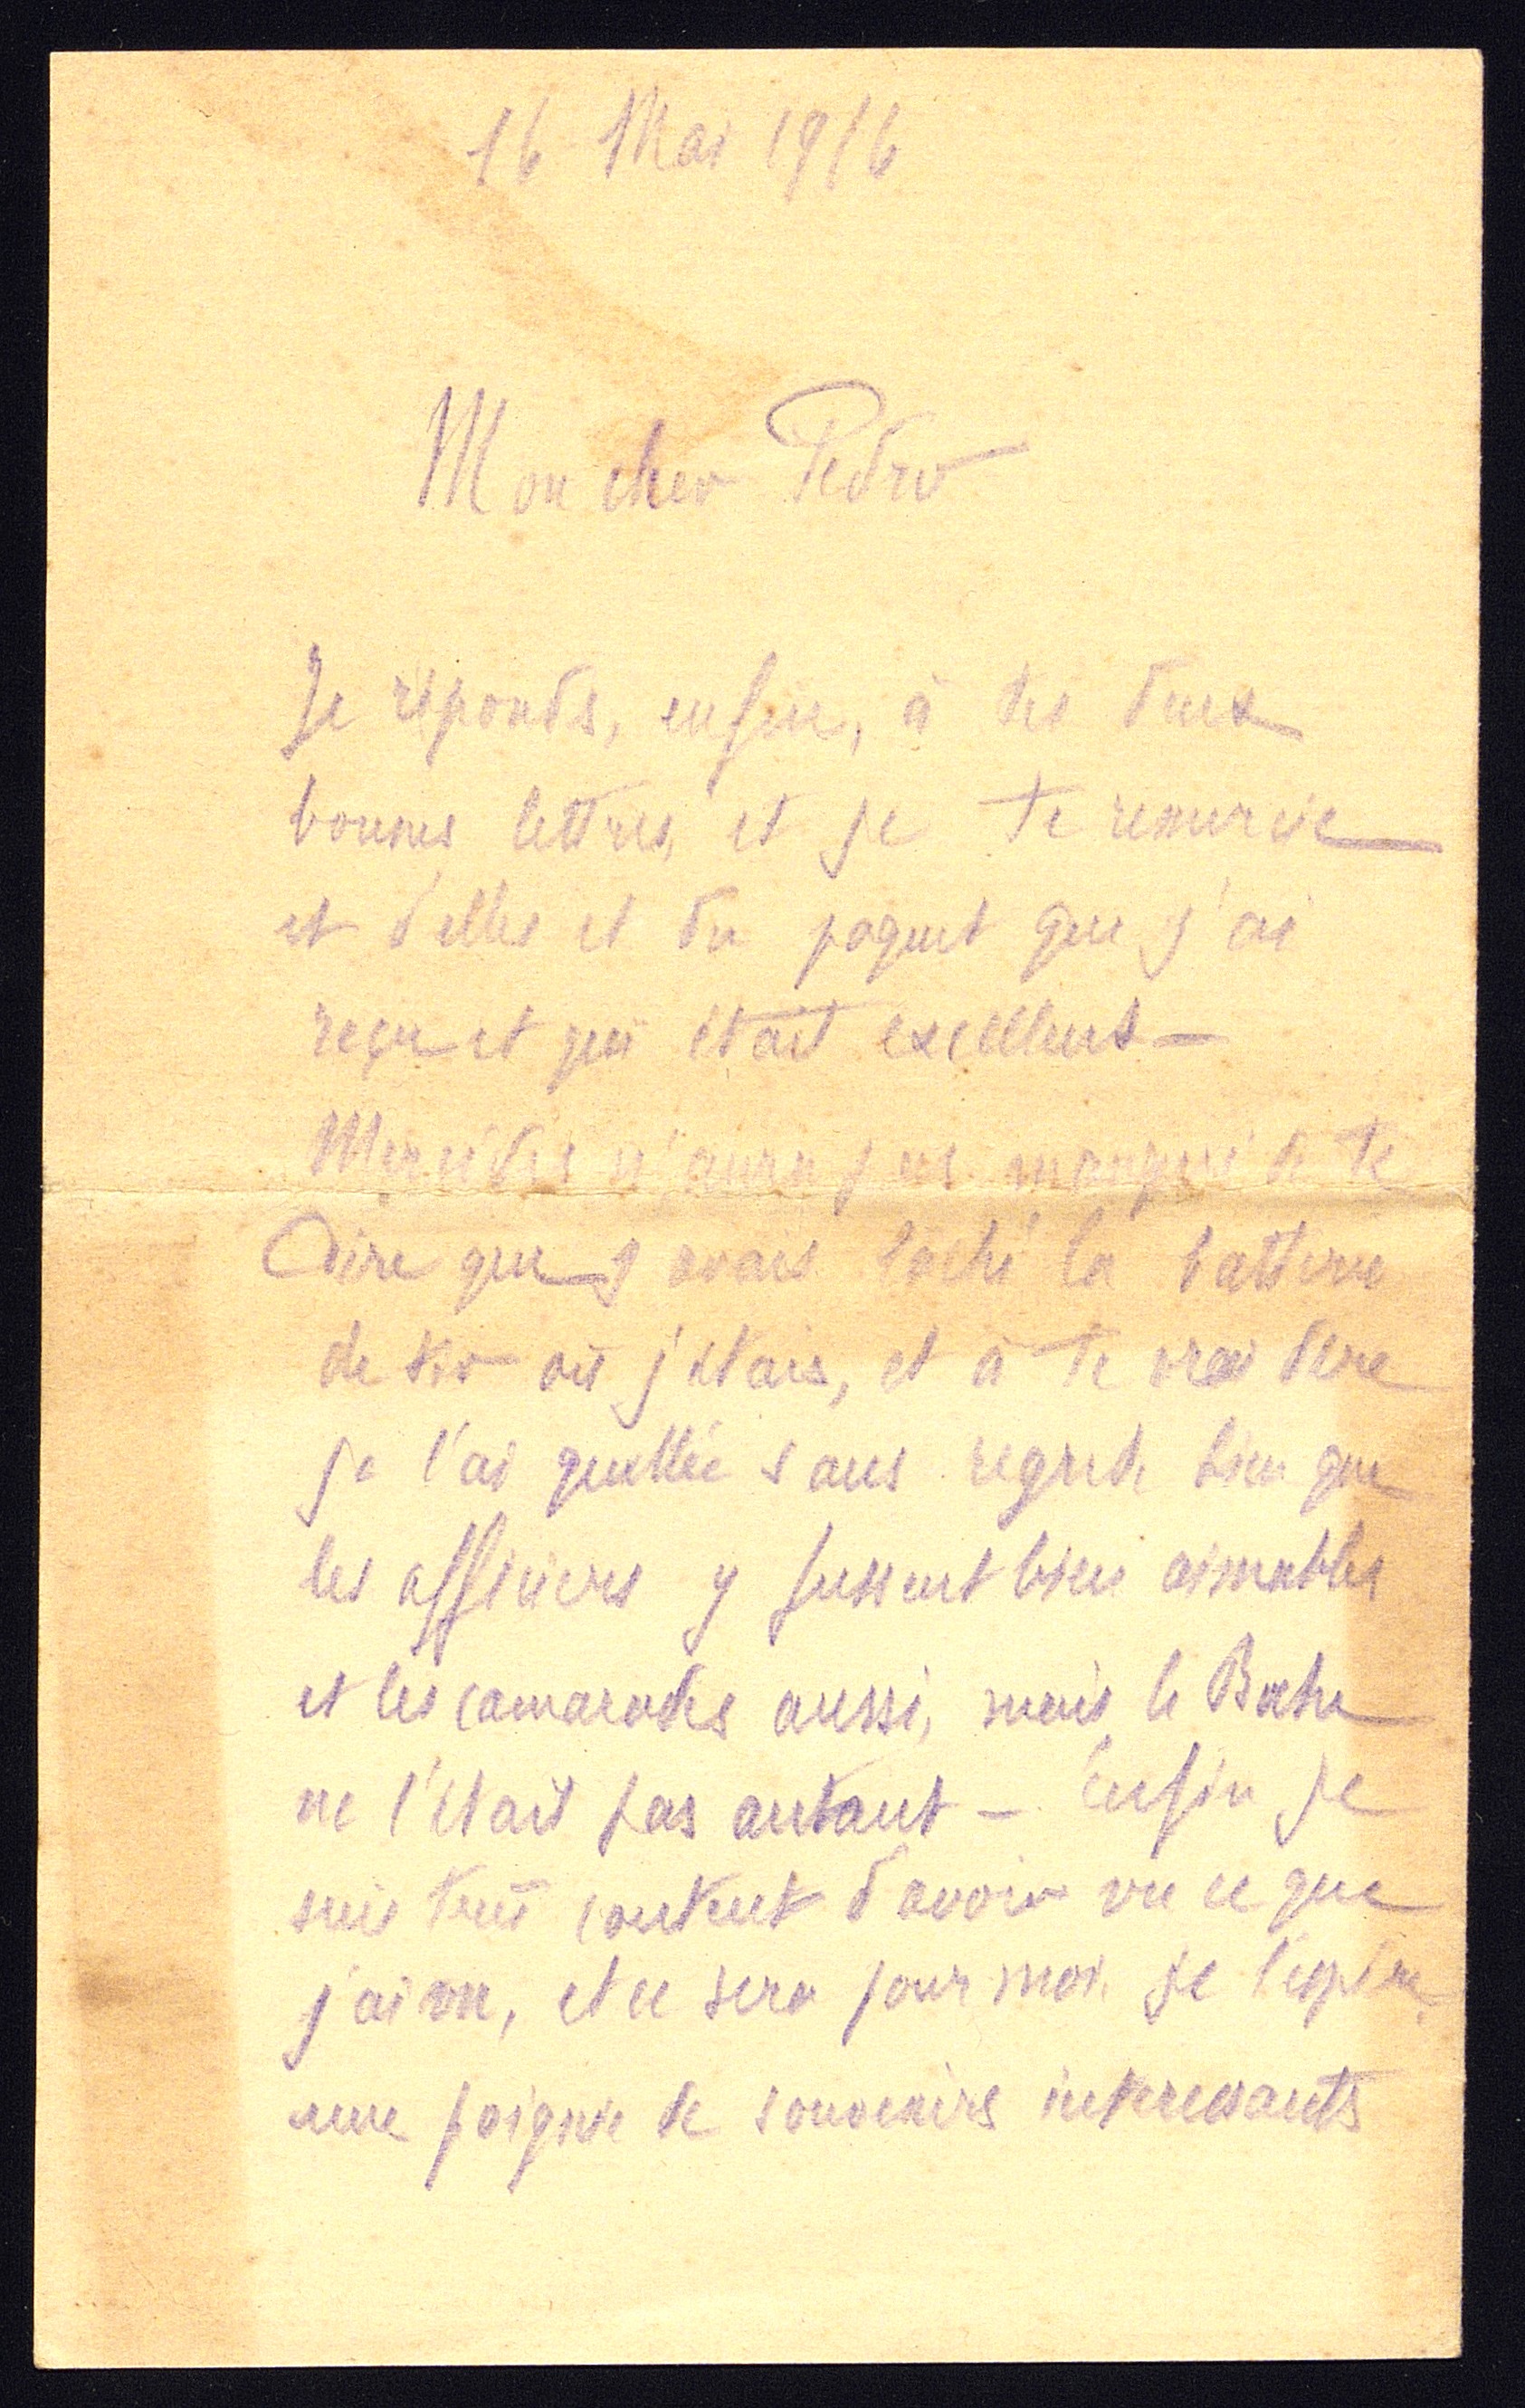 16 Mai 1916
Mon cher Pedro
Je réponds, enfin, à tes deux
bonnes lettres, et je te remercie
et d'elles et du paquet que j'ai
reçu et qui était excellent –
Mercédès n'aura pas manqué de te
dire que j'avais lâché la batterie
de tir où j'étais, et à te vrai dire
je l'ai quittée sans regret, bien que
les officiers y fussent bien aimables
et les camarades aussi, mais le Boche
ne l'était pas autant – Enfin je
suis tout content d'avoir vu ce que
j'ai vu, et ce sera pour moi, je l'espère,
une poignée de souvenirs interessants